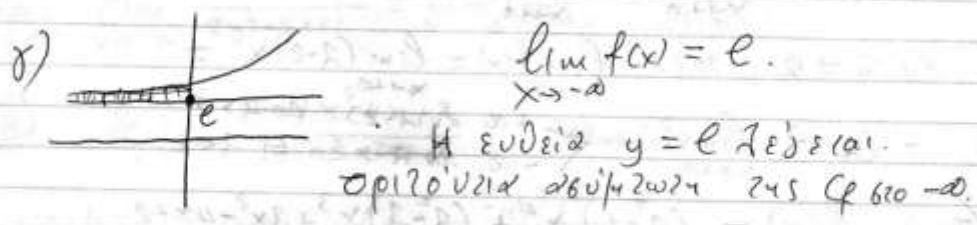 γ)
lim f(x) = l.
x→-∞
l
Η ευθεία y = l λέγεται.
οριζόντια ασύμπτωτη της Cf στο -∞.